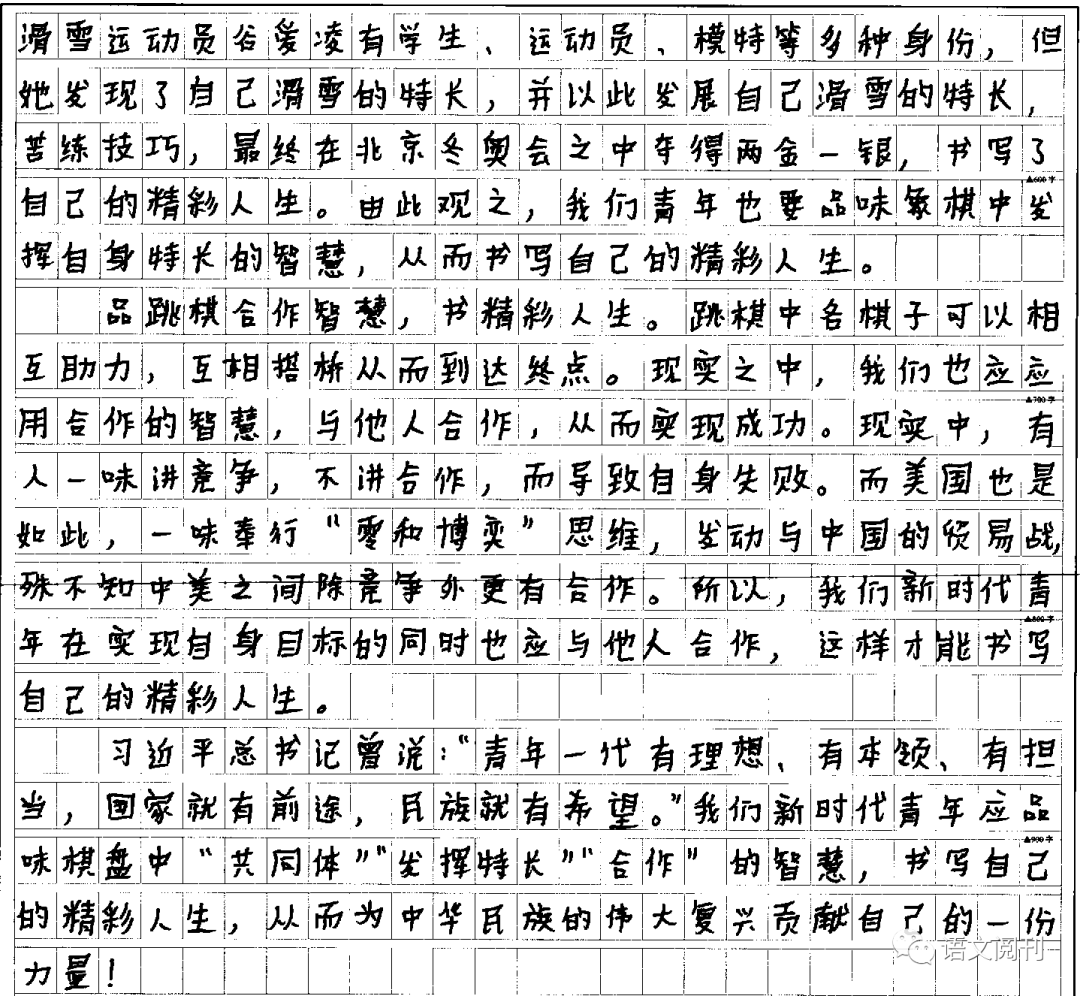 滑雪运动员谷爱凌有学生、运动员、模特等多种身份，但
她发现了自己滑雪的特长，并以此发展自己滑雪的特长，
苦练技巧，最终在北京冬奥会之中夺得两金一银，书写了
▲600字
自己的精彩人生。由此观之，我们青年也要品味象棋中发
挥自身特长的智慧，从而书写自己的精彩人生。
品跳棋合作智慧，书精彩人生。跳棋中各棋子可以相
互助力，互相搭桥从而到达终点。现实之中，我们也应应
▲700字
用合作的智慧，与他人合作，从而实现成功。现实中，有
人一味讲竞争，不讲合作，而导致自身失败。而美国也是
如此，一味奉行“零和博奕”思维，发动与中国的贸易战，
殊不知中美之间除竞争外更有合作。所以，我们新时代青
▲800字
年在实现自身目标的同时也应与他人合作，这样才能书写
自己的精彩人生。
习近平总书记曾说：“青年一代有理想、有本领、有担
当，国家就有前途，民族就有希望。”我们新时代青年应品
▲900字
味棋盘中“共同体”“发挥特长”“合作”的智慧，书写自己
的精彩人生，从而为中华民族的伟大复兴贡献自己的一份
力量！
语文阅刊